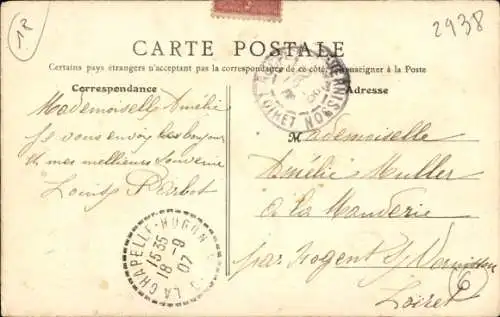 12
2938
CARTE POSTALE
Certains pays étrangers n'acceptant pas la correspondance de ce côté, se renseigner à la Poste
Correspondance
Adresse
LOIRET
Mademoiselle Amélie
Je vous envoy les bonjour
et mes meilleurs souvenir
Louis Barbot
Mademoiselle
Amélie Muller
à la Manderie
par Nogent s/ Vernisson
Loiret
6
LA CHAPELLE-HUGON
15 35
18 -9
07